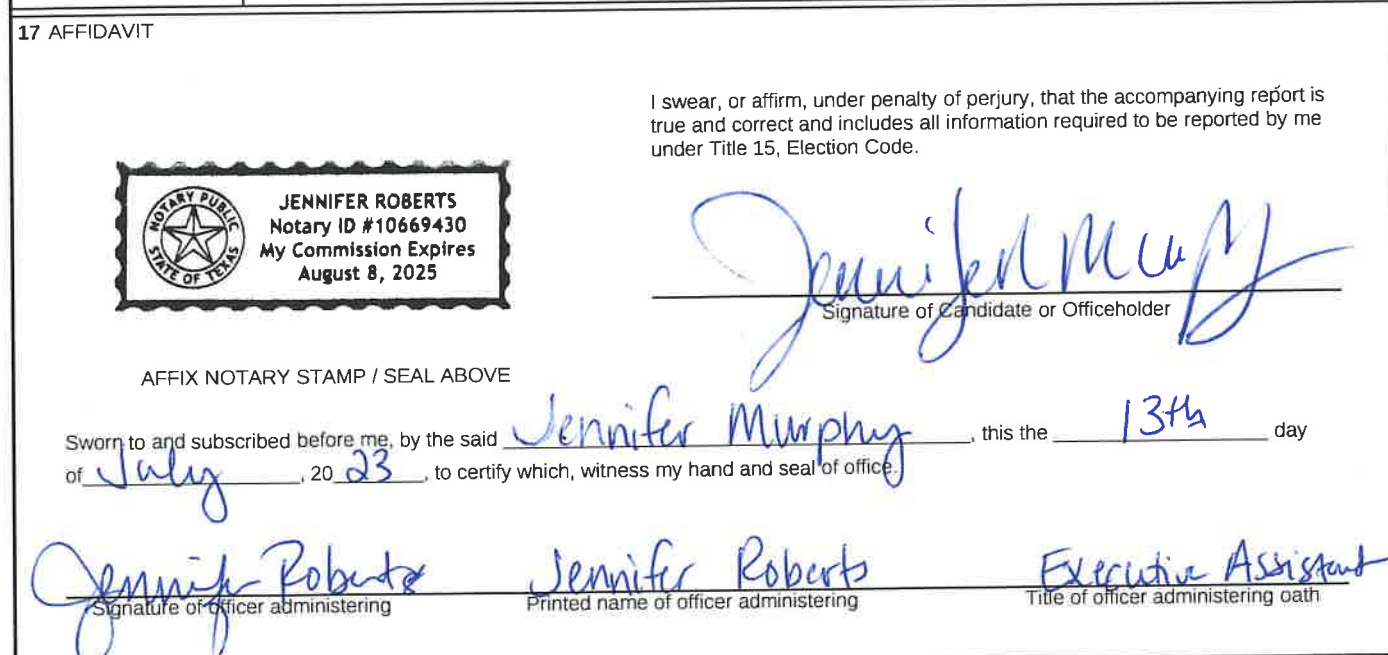 17 AFFIDAVIT
I swear, or affirm, under penalty of perjury, that the accompanying report is
true and correct and includes all information required to be reported by me
under Title 15, Election Code.
NOTARY PUBLIC
STATE OF TEXAS
JENNIFER ROBERTS
Notary ID #10669430
My Commission Expires
August 8, 2025
Jennifer Murphy
Signature of Candidate or Officeholder
AFFIX NOTARY STAMP / SEAL ABOVE
Sworn to and subscribed before me, by the said Jennifer Murphy, this the 13th day
of July, 20 23, to certify which, witness my hand and seal of office.
Jennifer Roberts Jennifer Roberts Executive Assistant
Signature of officer administering Printed name of officer administering Title of officer administering oath